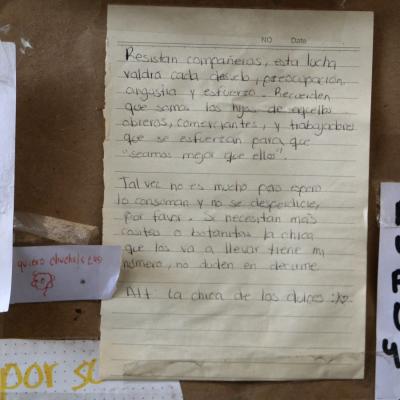 NO Date
Resistan compañeras, esta lucha
valdrá cada desvelo, preocupación,
angustia y esfuerzo. Recuerden
que somos los hijos de aquellos
obreros, comerciantes, y trabajadores
que se esfuerzan para que
"seamos mejor que ellos".
Tal vez no es mucho pero espero
lo consuman y no se desperdicie,
por favor. Si necesitan más
cositas o botanitas la chica
que los va a llevar tiene mi
número, no duden en decirme.
Att: La chica de los dulces :)♡
quiero chuchulucos
por s